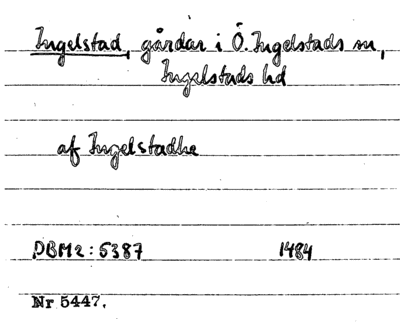 Ingelstad, gårdar i Ö. Ingelstads sn,
Ingelstads hd
af Ingelstadhe
DBM2:5387 1484
Nr 5447.